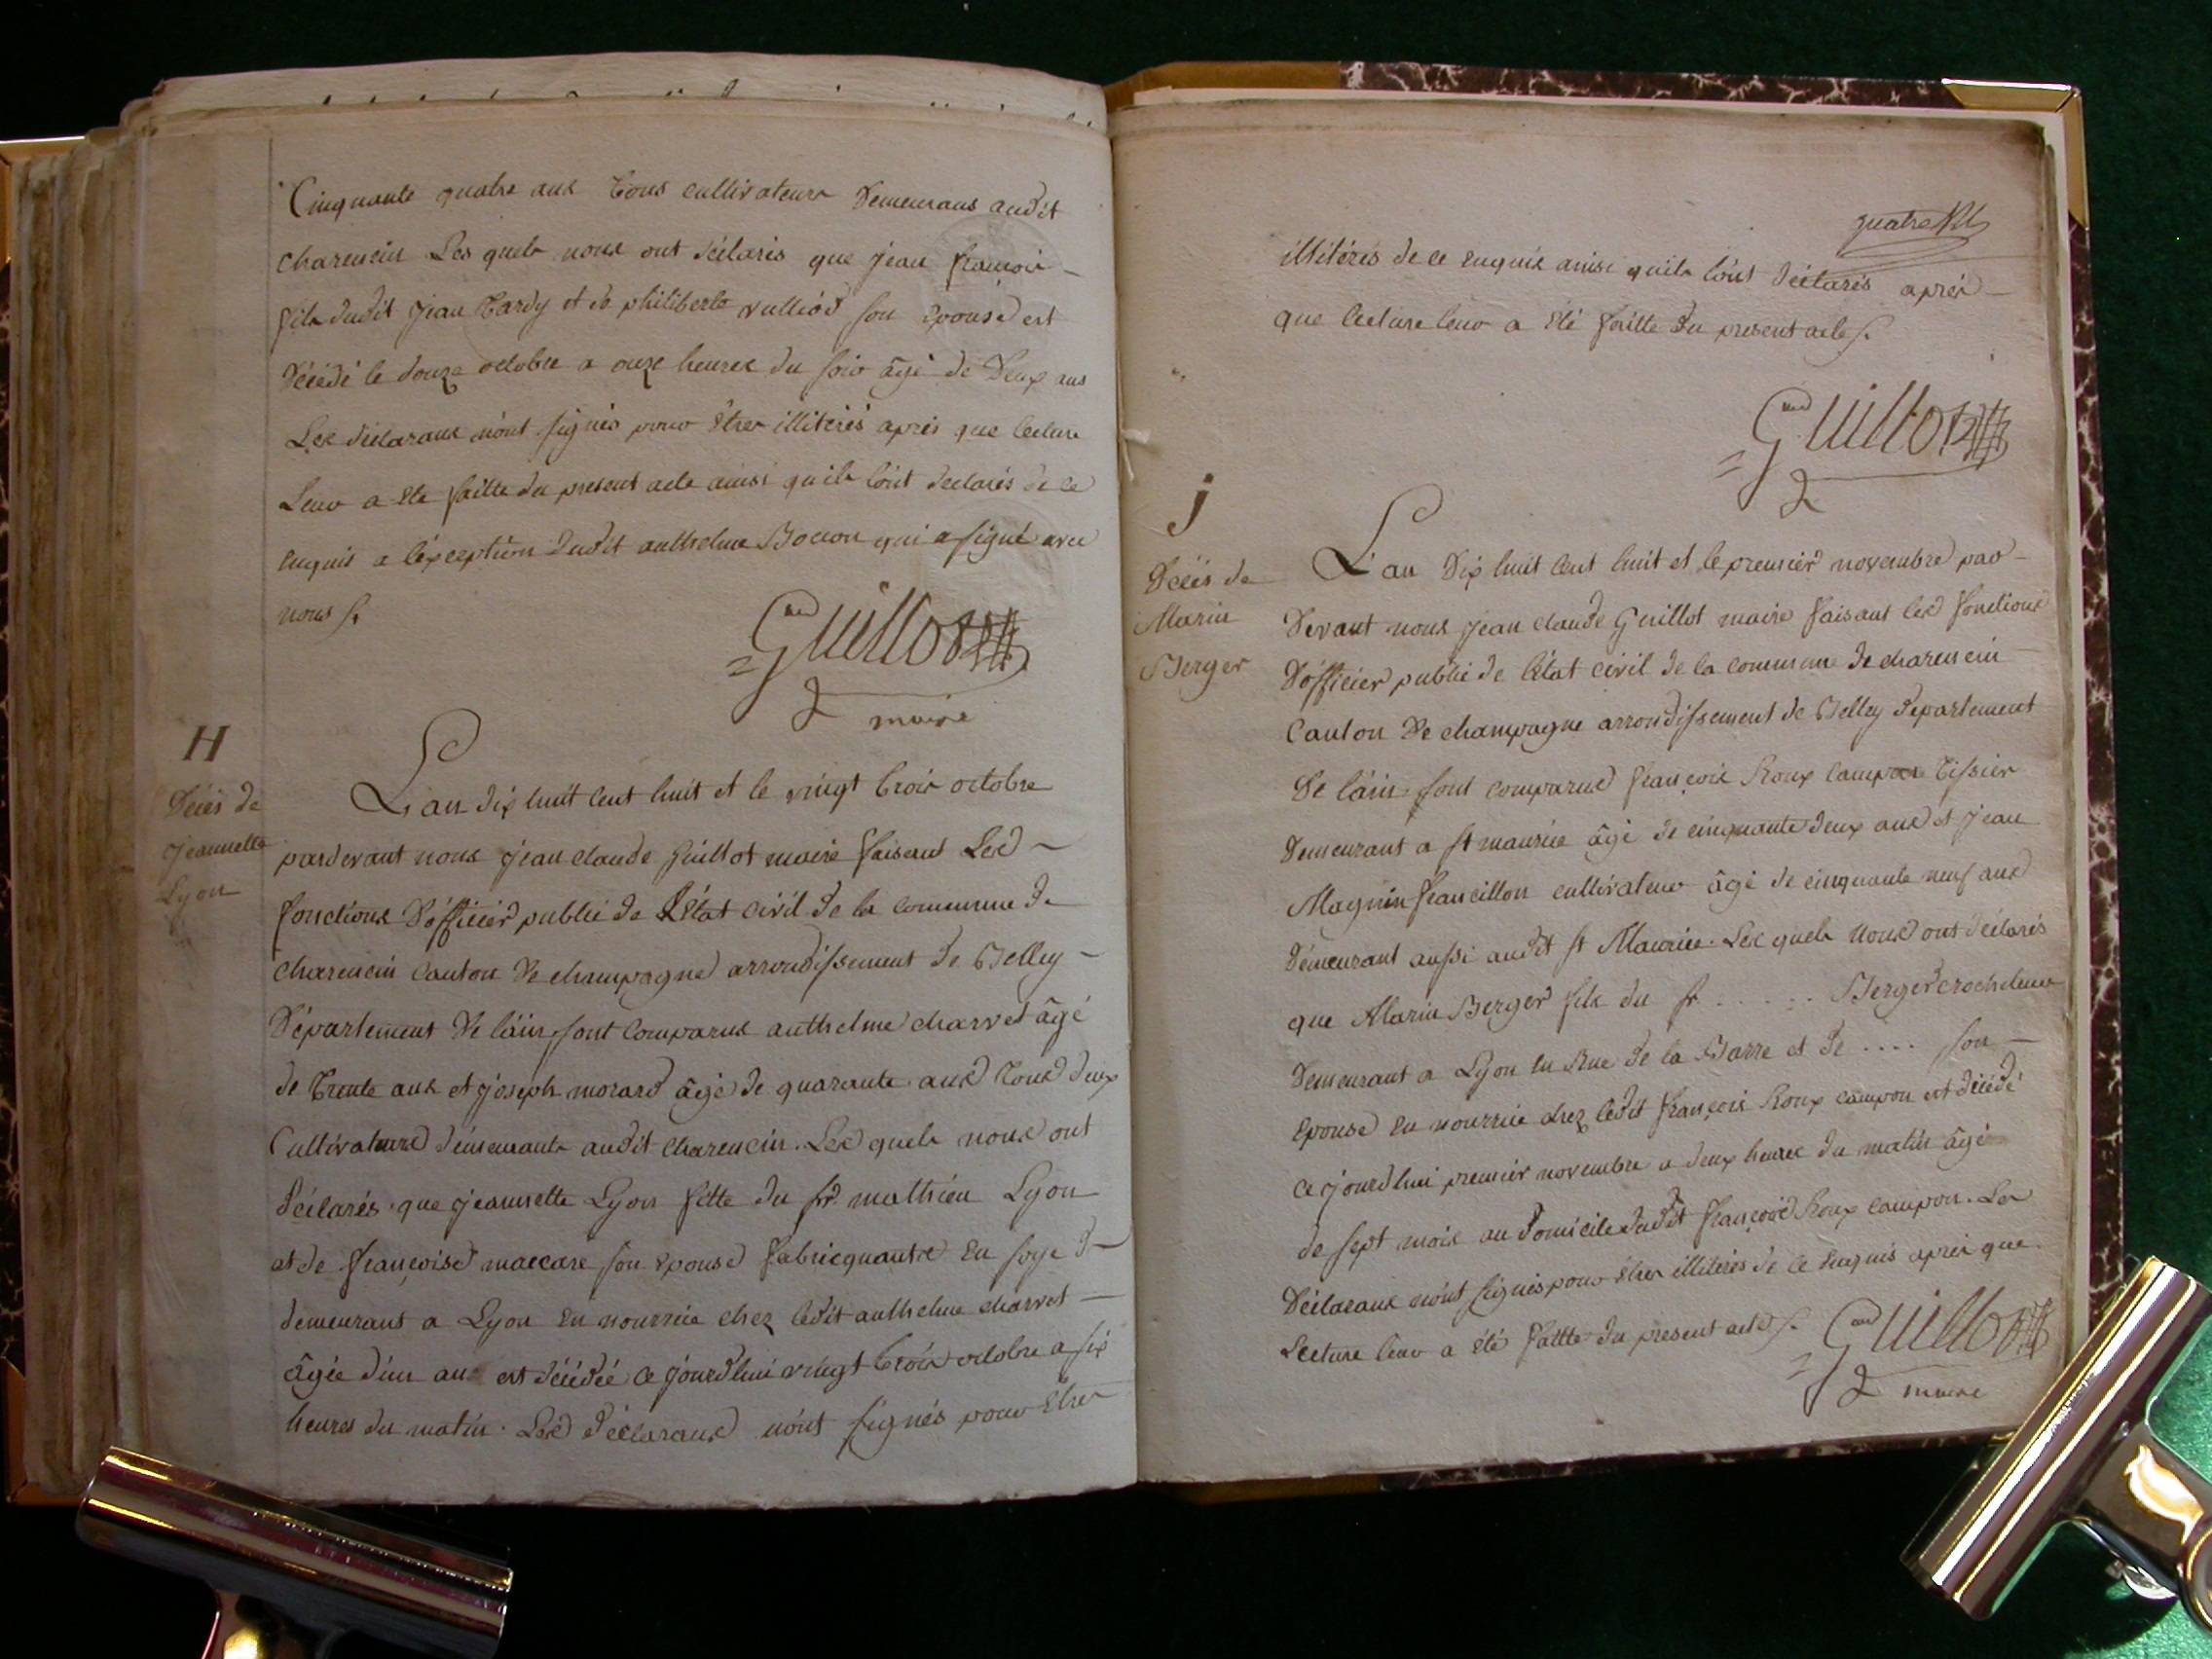 Cinquante quatre ans tous cultivateurs demeurans audit
charencin Les quels nous ont déclarés que jean françois
fils dudit jean tardy et de philiberte vulliod son épouse est
décédé le douze octobre a onze heures du soir âgé de deux ans
Les déclarans n'ont signés pour être illitérés après que lecture
Leur a été faitte du present acte ainsi qu'ils l'ont declarés de ce
enquis a l'exception dudit anthelme Bocion qui a signé avec
nous
Guillot
maire
H
Décès de
jeannette
Lyon
L'an dix huit cent huit et le vingt trois octobre
pardevant nous jean claude guillot maire faisant Les
fonctions d'officier public de L'état civil de la commune de
charencin canton de champagne arrondissement de Belley
Département de l'ain sont comparus anthelme charvet âgé
de trente ans et joseph morard âgé de quarante ans tous deux
Cultivateurs demeurants audit charencin. Les quels nous ont
déclarés que jeannette Lyon fille du sr mathieu Lyon
et de françoise maccare son épouse fabricquants en soye
demeurans a Lyon en nourrice chez ledit anthelme charvet
âgée d'un an est décédée ce jourd'hui vingt trois octobre a six
heures du matin. Les déclarans n'ont signés pour être
quatre
illitérés de ce enquis ainsi qu'ils l'ont déclarés après
que lecture leur a été faitte du present acte
Guillot
j
Décès de
Marin
Berger
L'an dix huit cent huit et le premier novembre par
Devant nous jean claude Guillot maire faisant les fonctions
D'officier public de l'état civil de la commune de charencin
Canton de champagne arrondissement de Belley departement
De l'ain sont comparus françois Roux campon tissier
Demeurant a st maurice âgé de cinquante deux ans et jean
Magnin francillon cultivateur âgé de cinquante neuf ans
Demeurant aussi audit st Maurice. Les quels nous ont déclarés
que Marin Berger fils du sr ...... Berger crocheteur
Demeurant a Lyon en Rue de la Barre et de .... son
épouse en nourrice chez ledit françois Roux campon est décédé
ce jourd'hui premier novembre a deux heures du matin âgé
de sept mois au domicile dudit françois Roux campon. Les
Déclarans n'ont signés pour être illitérés de ce enquis après que
Lecture leur a été faitte du present acte
Guillot
maire